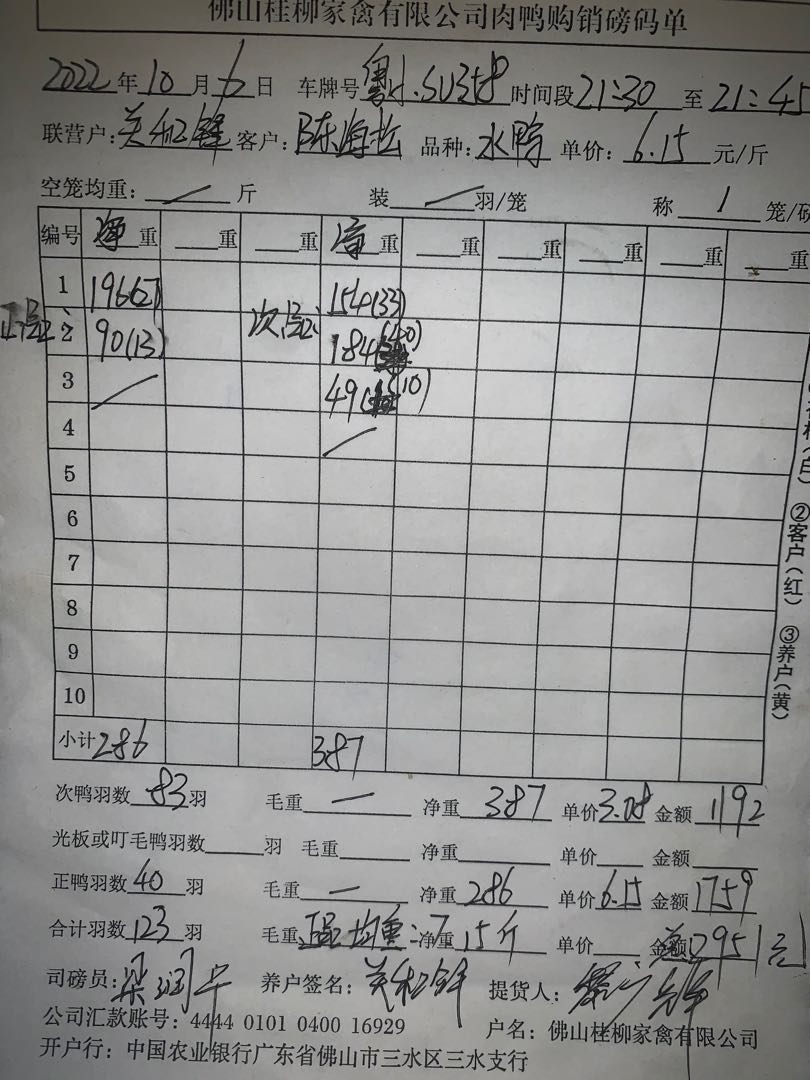 佛山桂柳家禽有限公司肉鸭购销磅码单
2022年10月6日 车牌号 粤 时间段21:30 至 21:45
联营户: 关和锋 客户: 陈海松 品种: 水鸭 单价: 6.15 元/斤
空笼均重: / 斤 装 / 羽/笼 称 1 笼/磅
编号 净重 重 重 净重 重 重 重 重 重
1 196(27) 154(33)
正品: 2 90(13) 次品: 184(40)
3 / 49(10)
4 /
5
6
7
8
9
10
小计 286 387
(白) ②客户(红) ③养户(黄)
次鸭羽数 83 羽 毛重 — 净重 387 单价 3.08 金额 1192
光板或叮毛鸭羽数 羽 毛重 净重 单价 金额
正鸭羽数 40 羽 毛重 — 净重 286 单价 6.15 金额 1759
合计羽数 123 羽 毛重 正品均重: 7.15斤 净重 单价 金额 总 2951元
司磅员: 梁润 养户签名: 关和锋 提货人:
公司汇款账号: 4444 0101 0400 16929 户名: 佛山桂柳家禽有限公司
开户行: 中国农业银行广东省佛山市三水区三水支行